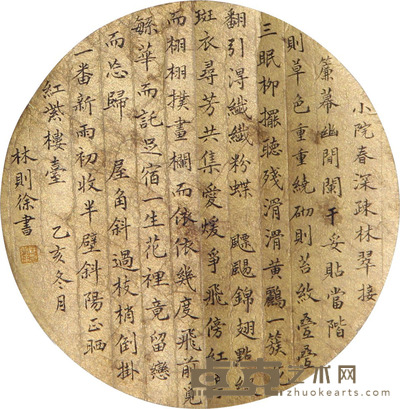 小院春深疎林翠接
簾幕幽閒闌干妥貼當階
則草色重重統砌則苔紋疊疊
三眠柳擺聽殘滑滑黃鸝簇
翻引浔纖纖粉蝶 飃颺錦翅點
斑衣尋芳共集愛煖爭飛傍紅
而栩栩撲畫欄而依依幾度飛前覓
蘇華而託足宿一生花裡竟留戀
而忘歸 屋角斜過枝梢倒掛
一番新雨初收半壁斜陽正晒
紅紫樓臺 乙亥冬月
林則徐書
卓克艺术网
www.zhuokearts.com